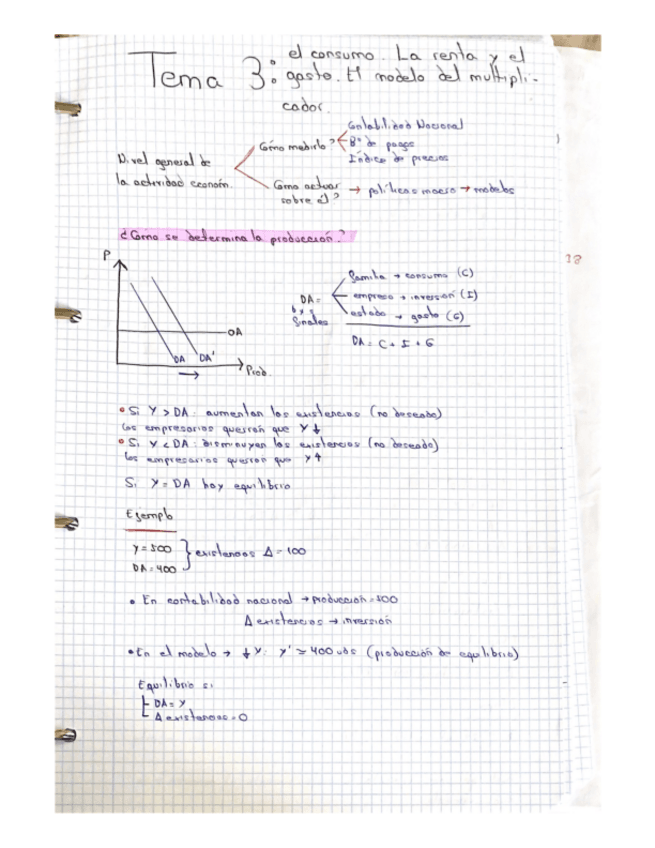 Tema 3: el consumo. La renta y el
gasto. El modelo del multipli-
cador.
Nivel general de
la actividad económ.
Cómo medirlo?
Contabilidad Nacional
Bº de pagos
Índice de precios
Como actuar
sobre el? → políticas macro → modelos
¿Como se determina la producción?
P
OA
DA DA'
→ Prod.
38
DA =
b y s
finales
familia → consumo (C)
empresa → inversión (I)
estado → gasto (G)
DA = C + I + G
• Si Y > DA: aumentan las existencias (no deseado)
los empresarios querran que Y ↓
• Si Y < DA: disminuyen las existencias (no deseado)
los empresarios querran que Y ↑
Si Y = DA hay equilibrio
Ejemplo
Y = 500
DA = 400
} existencias Δ = 100
• En contabilidad nacional → producción = 500
Δ existencias → inversión
• En el modelo → ↓ Y: Y' = 400 uds (producción de equilibrio)
Equilibrio si
DA = Y
Δ existencias = 0